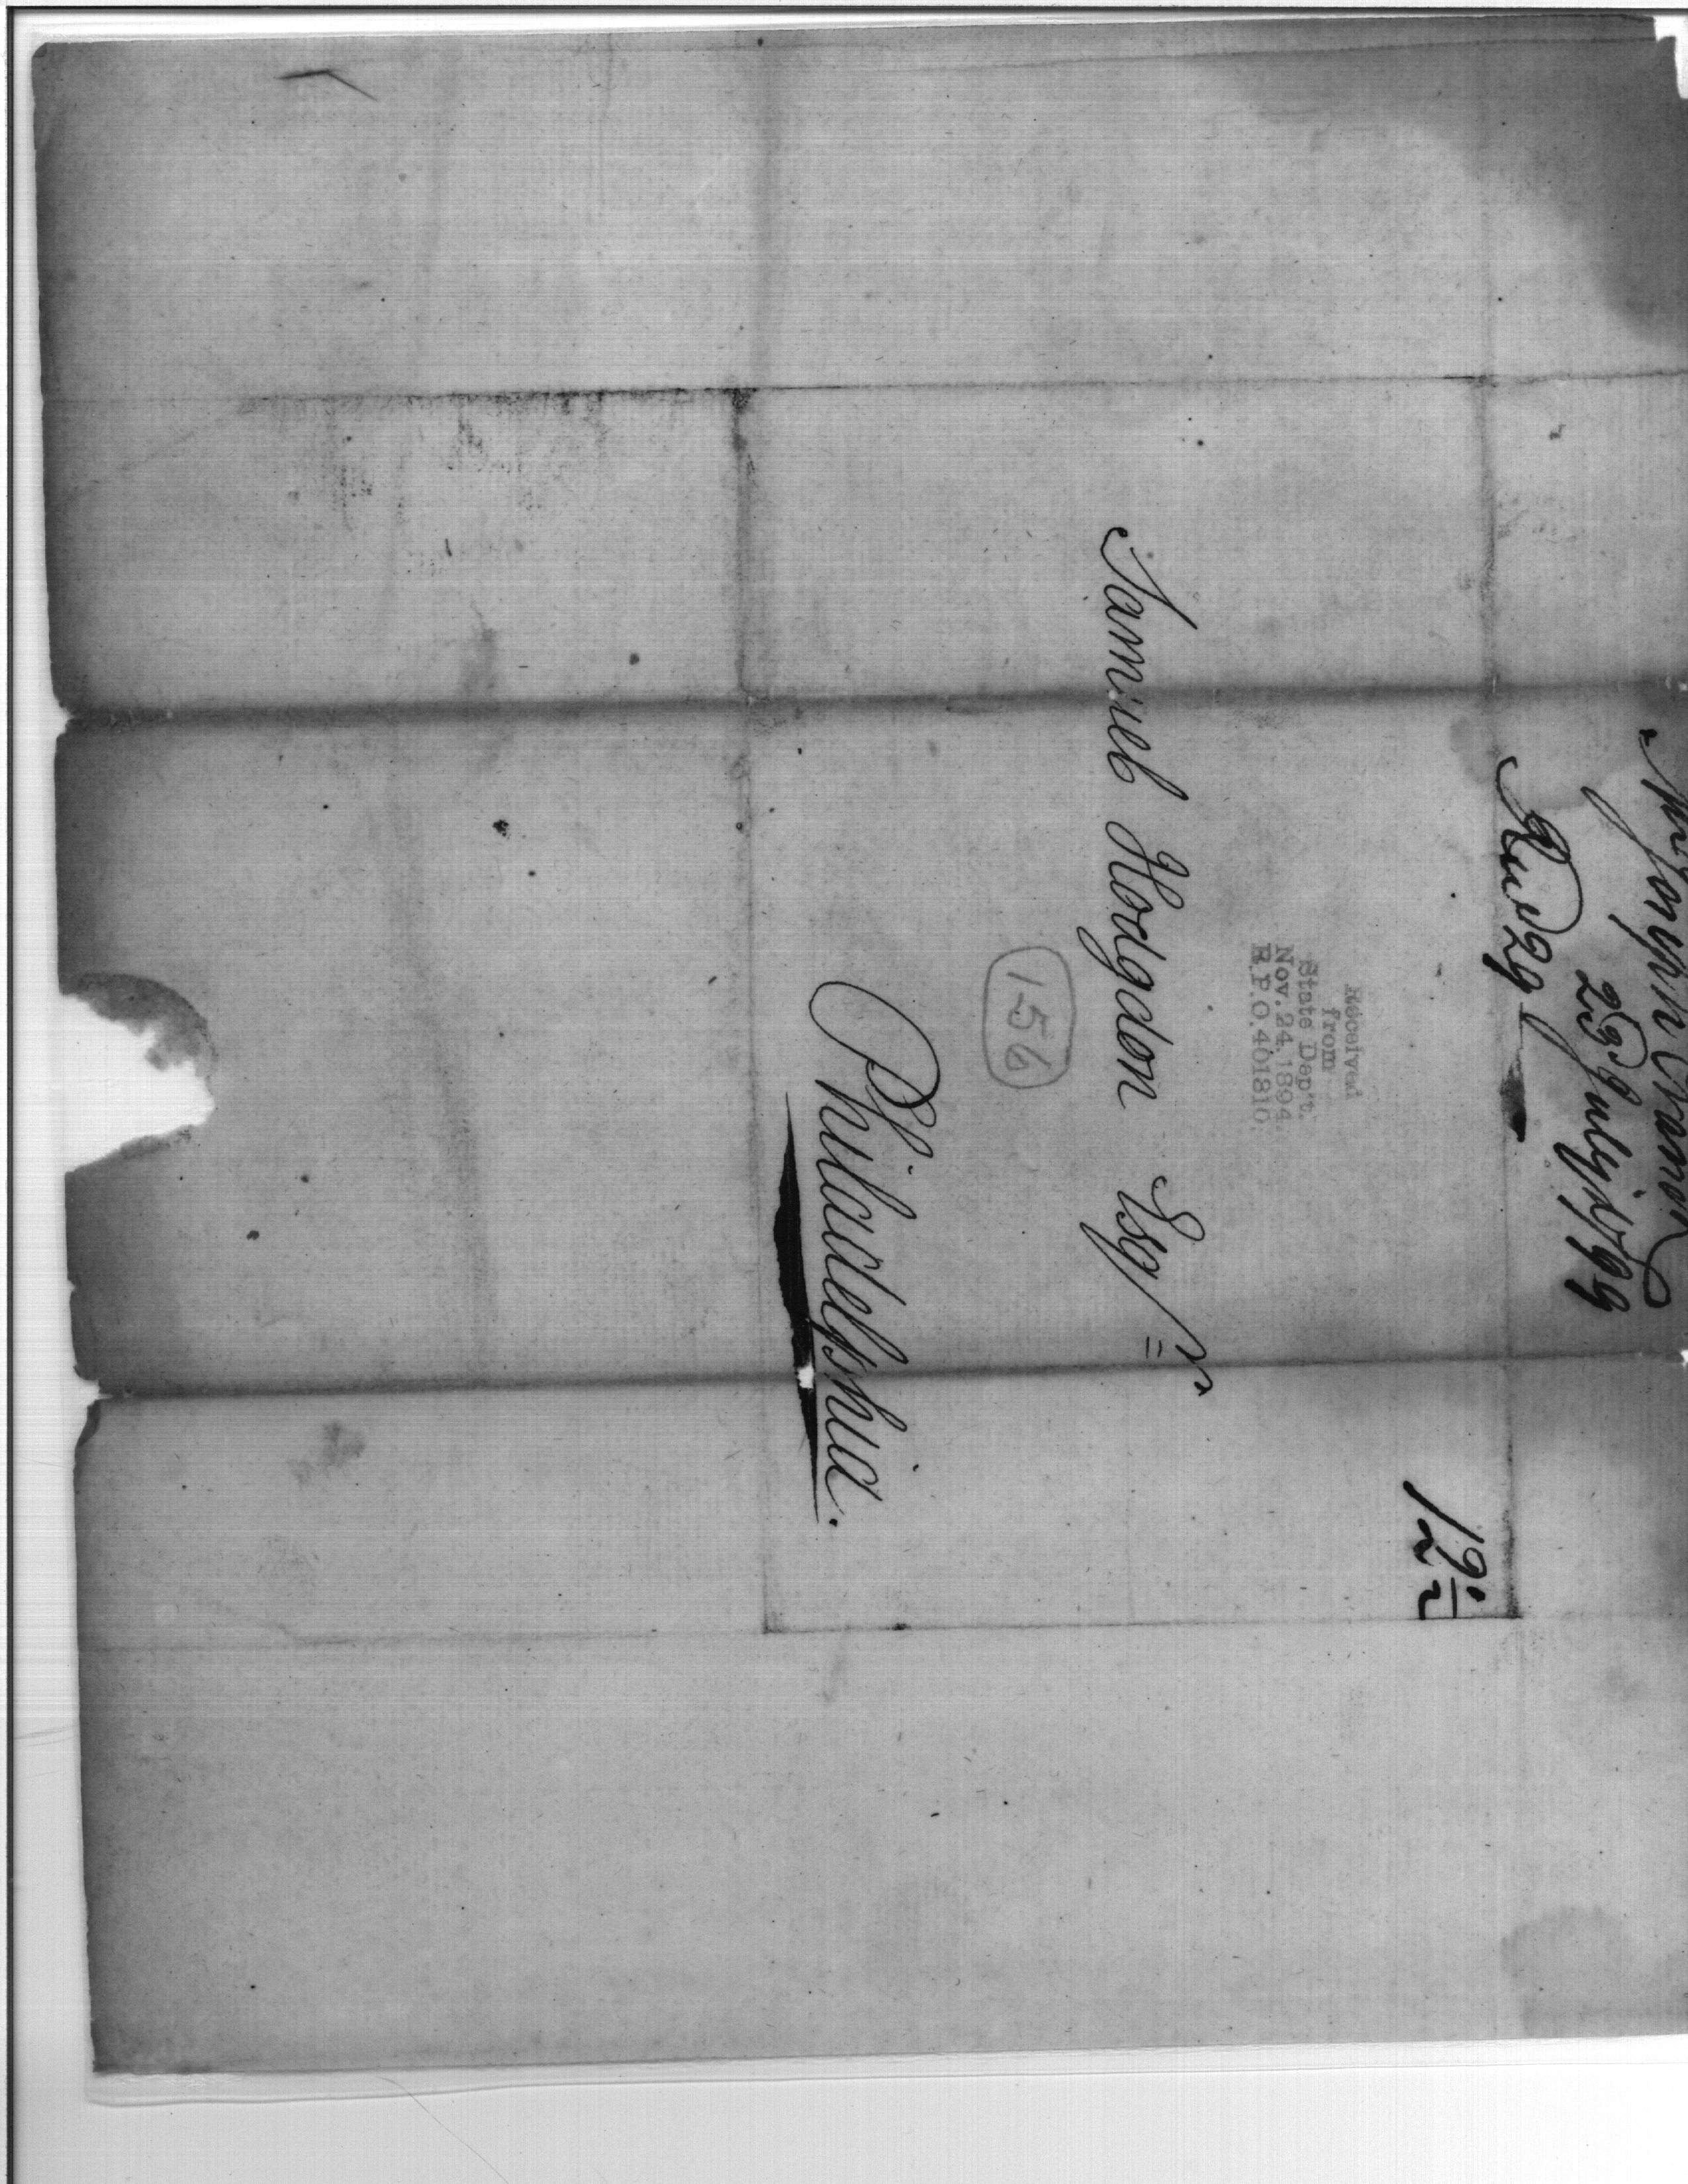 Mr Joseph
23d July 1799
Rec'd 29
12½
Received
from
State Dep't.
Nov. 24, 1894.
R.P.O. 401810.
Samuel Hodgdon Esqr
156
Philadelphia.